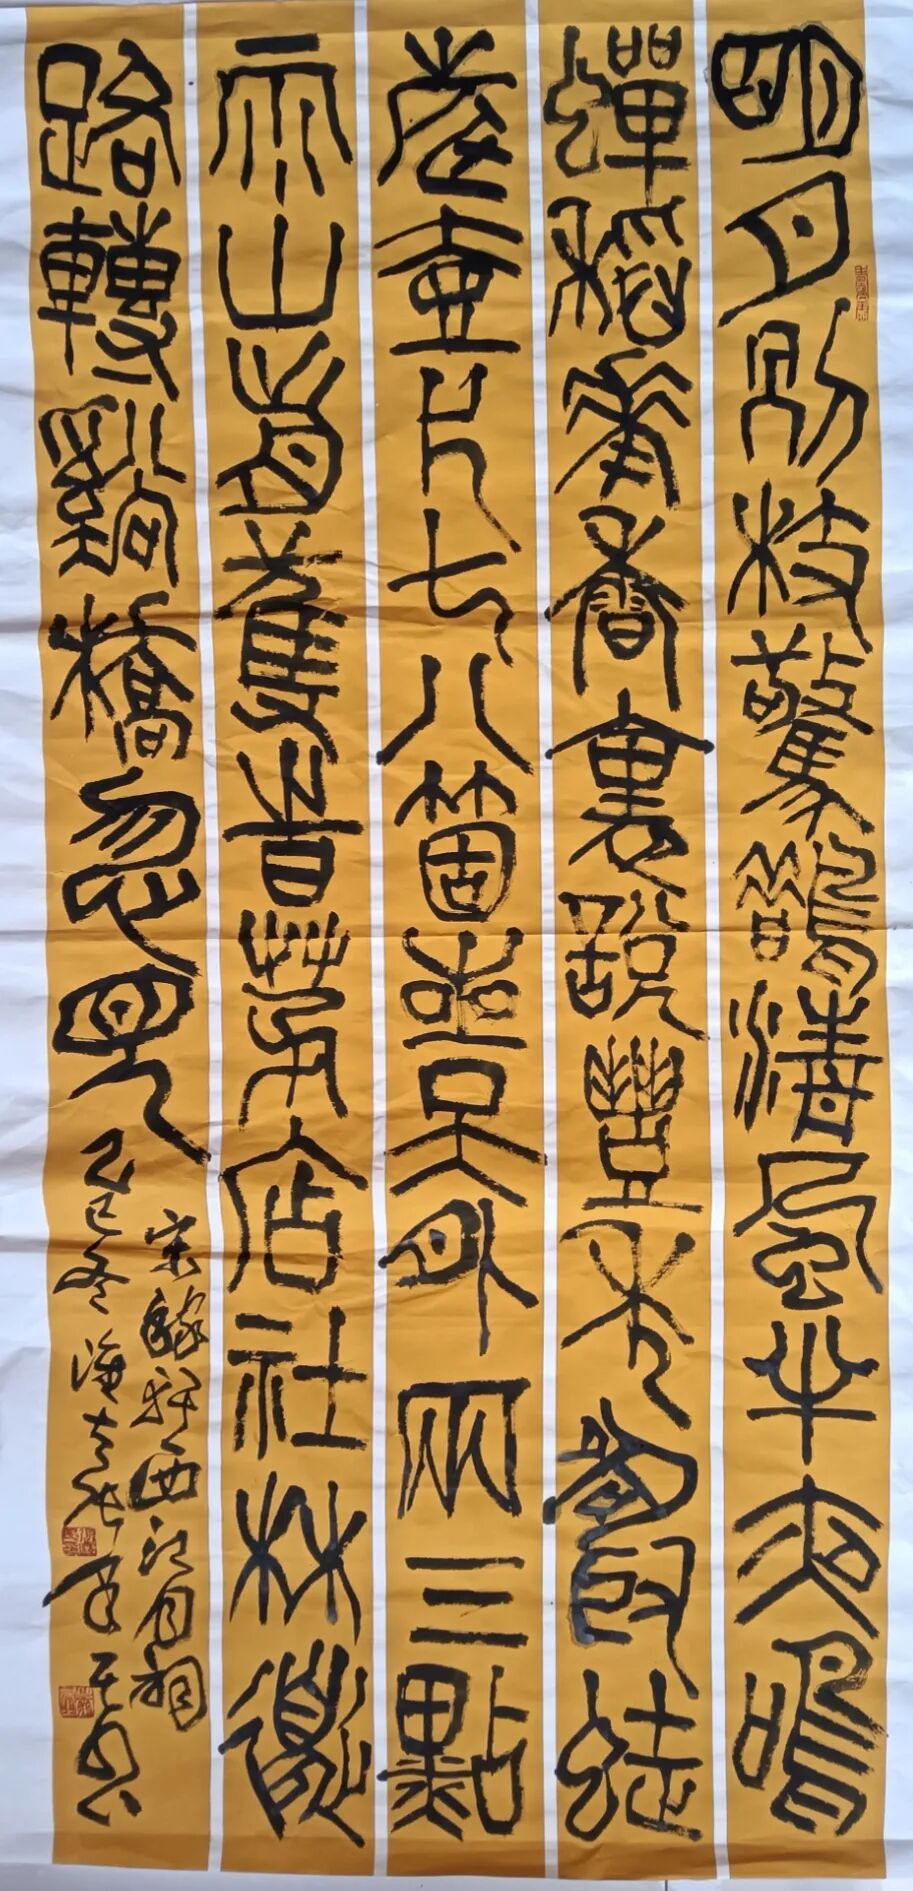 明月別枝驚鵲清風半夜鳴
蟬稻花香裏說豐年聽取蛙
聲壹片七八箇星天外兩三點
雨山前舊時茅店社林邊
路轉谿橋忽見
宋稼軒西江月詞
乙巳冬